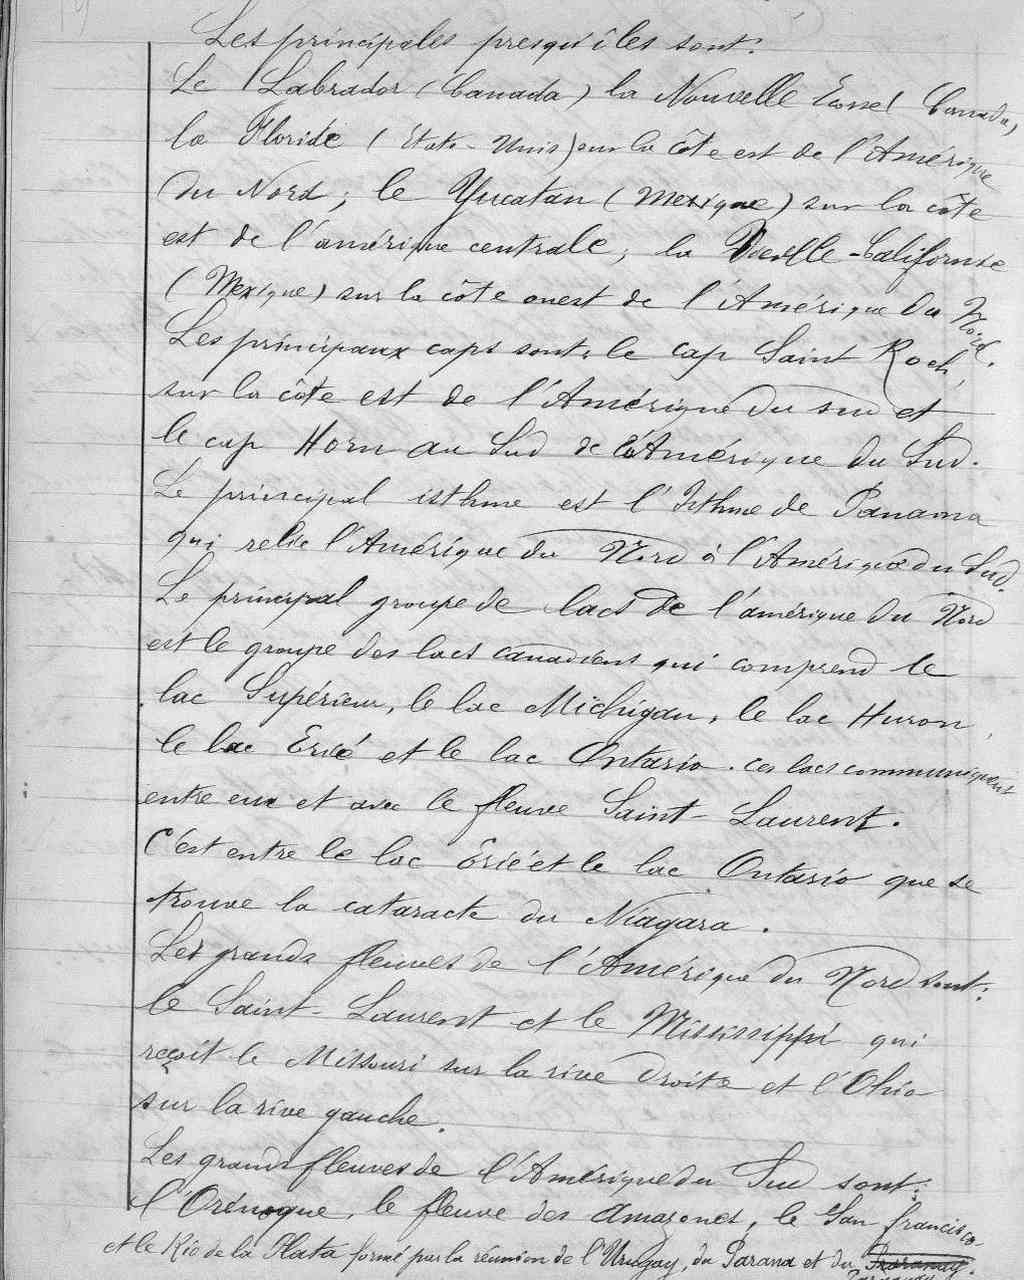 Les principales presqu'îles sont:
Le Labrador (Canada) la Nouvelle Ecosse (Canada,
la Floride (Etats-Unis) sur la côte est de l'Amérique
du Nord; le Yucatan (Mexique) sur la côte
est de l'amérique centrale; la Vieille-Californie
(Mexique) sur la côte ouest de l'Amérique du Nord.
Les principaux caps sont: le cap Saint Roch,
sur la côte est de l'Amérique du sud et
le cap Horn au Sud de l'Amérique du Sud.
Le principal isthme est l'Isthme de Panama
qui relie l'Amérique du Nord à l'Amérique du Sud.
Le principal groupe de lacs de l'amérique du Nord
est le groupe des lacs canadiens qui comprend le
lac Supérieur, le lac Michigan, le lac Huron,
le lac Erié et le lac Ontario. Ces lacs communiquent
entre eux et avec le fleuve Saint-Laurent.
C'est entre le lac Erié et le lac Ontario que se
trouve la cataracte du Niagara.
Les grands fleuves de l'Amérique du Nord sont:
le Saint-Laurent et le Mississippi qui
reçoit le Missouri sur la rive droite et l'Ohio
sur la rive gauche.
Les grands fleuves de l'Amérique du Sud sont:
l'Orénoque, le fleuve des Amazones, le San francisco
et le Rio de la Plata formé par la réunion de l'Urugay, du Parana et du